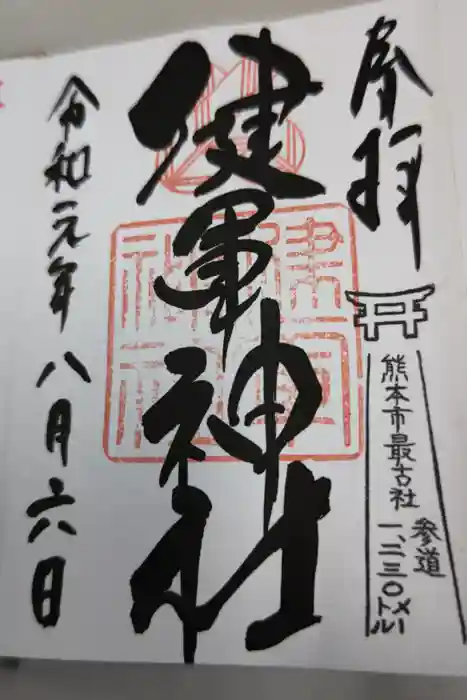 奉拝
熊本市最古社
参道
一、二三〇メートル
健軍神社
健軍神社
令和元年八月六日